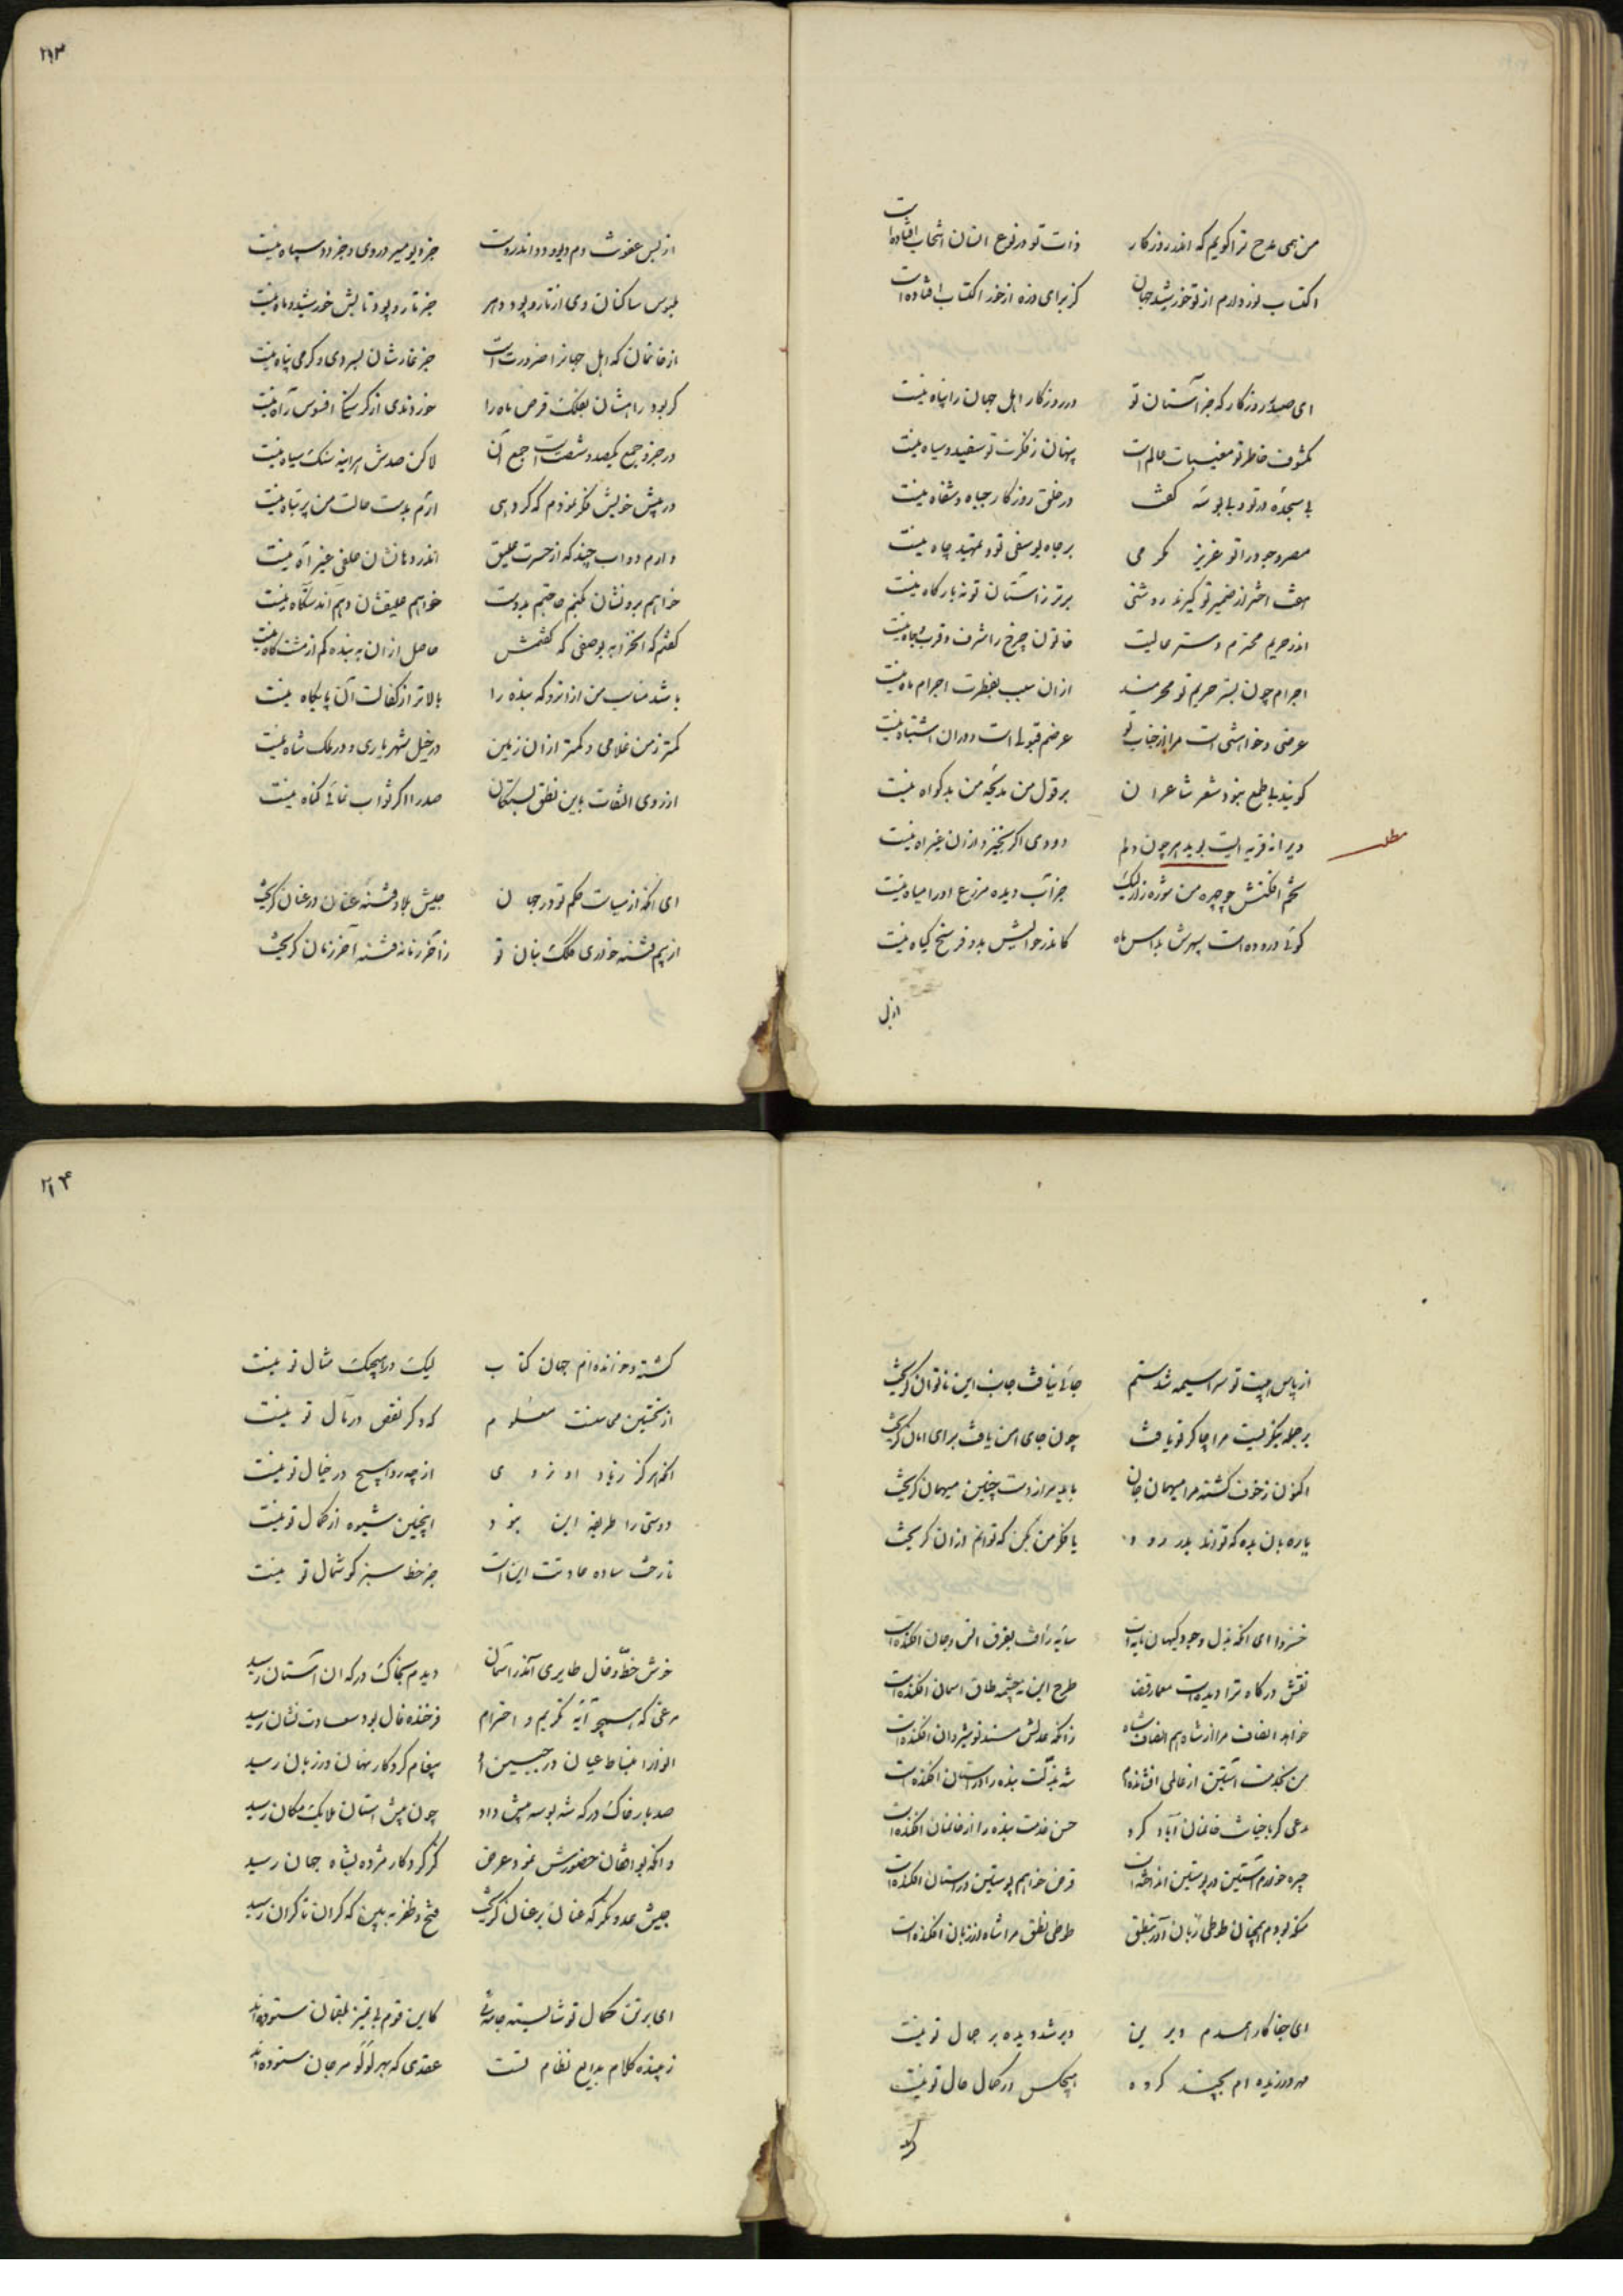 من همی مدح ترا گویم که اندر روزگار ذات تو در نوع انسان انتخاب افتاده است
اکتساب نور دارم از تو خورشید جهان کز برای ذره از خور اکتساب افتاده است
ای صید روزگار که جز آستان تو در روزگار اهل جهان را پناه نیست
مکشوف خاطر تو مغیبات عالم است پنهان ز فکرت تو سفید و سیاه نیست
بی سجده در تو و بی بوسه کفت در خلق روزگار جباه و شفاه نیست
مصر وجود را تو عزیز مکرمی بر جاه یوسفی تو و تمهید چاه نیست
هفت اختر از ضمیر تو گیرند روشنی برتر ز آستان تو نه بارگاه نیست
اندر حریم محترم و ستر عالیت خاتون چرخ را شرف و قرب و جاه نیست
اجرام چون بستر حریم تو محرمند از ان سبب بفطرت اجرام ماه نیست
عرضی و خواهشی است مرا از جناب تو عرضم قبول است و در ان اشتباه نیست
گویند بی طمع نبود شعر شاعران بر قول من نتیجه من بد گواه نیست
ویرانه قریه ایست بوید پر چون دلم دودی اگر بخیزد از ان غیر آه نیست
تخم افکنش چو چهره من شوره زار لیک جز آب دیده مزرع او را میاه نیست
گوئی دروده است سپهرش بداس ماه کاندر حوالیش بدو فرسخ گیاه نیست
از بس
۲۱۳
از بس عفونت دم دیو و دد اندروست جز دیو میر در وی و جز دد سپاه نیست
ملبوس ساکنان وی از تار و پود دهر جز تار و پود تابش خورشید و ماه نیست
از خانمان که اهل جهانرا ضرورت است جز غارشان بسردی و گرمی پناه نیست
گر بود راهشان بفلک قرص ماه را خوردندی از گرسنگی افسوس راه نیست
در جزو جمع یکصد و شصت است جمع آن لاکن صدش هر اینه سنگ سیاه نیست
در پیش خویش فکر نمودم که گر دهی ارم بدست حالت من پر تباه نیست
دارم دواب چند که از حسرت علیق اندر دهانشان علفی غیر آه نیست
خواهم برونشان کنم حاجتم بدوست خواهم علیقشان دهم اندستگاه نیست
گفتم که انخرابه بوصفی که گفتمش حاصل از ان به بنده کم از مشت کاه نیست
باشد مناسب من از انرو که بنده را بالاتر از کفالت آن پایگاه نیست
کمتر ز من غلامی و کمتر از ان زمین در خیل شهریاری و در ملک شاه نیست
از روی التفات باین نطق بستگان صدرا اگر ثواب نمائی گناه نیست
ای انکه از سیاست حکم تو در جهان جیش بلا و فتنه عنان در عنان گریخت
از بیم فتنه خوردی کلک بنان تو ز آخر زمانه فتنه آخر زمان گریخت
از پاس هیبت تو سراسیمه شد ستم جائی نیافت جانب این ناتوان گریخت
بر جمله بنگریست مرا چاکر تو یافت چون جای امن یافت برای امان گریخت
اکنون ز خوف گشته مرا میهمان جان باید مرا ز دست چنین میهمان گریخت
یا ره بان بده که تواند بدر رود یا فکر من بکن که توانم از ان گریخت
خسروا ای انکه بذل وجود کیهان مایه ات سایه رأفت بفرق انس و جان افکنده است
نقش درگاه ترا دیدست معمار قضا طرح این نه چشمه طاق آسمان افکنده است
خواهد انصاف مرا از شاه هم انصاف شاه زانکه عدلش مسند نوشیروان افکنده است
من بخدمت آستین از عالمی افشانده ام شه بذلت بنده را در آستان افکنده است
مدعی گر با خیانت خانمان آباد کرد حسن خدمت بنده را از خانمان افکنده است
چیره خوردم آستین در پوستین انداخته است قرض خواهم پوستین در آستان افکنده است
منکه بودم همچنان طوطی زبان آور بنطق طوطی نطق مرا شاه از زبان افکنده است
ای جفا کار همدم دیرین دیر شد دیده بر جمال تو نیست
مهر ورزیده ام بچند گروه هیچکس در کمال حال تو نیست
گشته
۲۱۴
گشته و خوانده ام جهان کتاب لیک در هیچیک مثال تو نیست
از نخستین همی معلوم که دگر نقص در مآل تو نیست
انکه هرگز ز یاد او نروی از چه رو هیچ در خیال تو نیست
دوستی را طریقه این نبود اینچنین شیوه از کمال تو نیست
تا رخت ساده عادتت این است جز خط سبز گوشمال تو نیست
خوش خط و خال طایری آمد ز آسمان دیدم بخاک درگه ان آستان رسید
مرغی که همچو آیه تکریم و احترام فرخنده فال بود سعادت نشان رسید
انوار انبساط عیان در جبین او پیغام کردگار نهان در زبان رسید
صد بار خاک درگه شه بوسه پیش داد چون پیش استان ملایک مکان رسید
وانگه بواقفان حضورش نمود عرض کز کردگار مژده بشاه جهان رسید
جیش عدو نگر که عنان بر عنان گریخت فتح و ظفر ببین که کران تا کران رسید
ای بر تن کمال تو شایسته جامه ئی کاین قوم بی تمیز بلقمان ستوده اند
زیبنده کلام بدایع نظام تست عقدی که بهر لؤلؤ مرجان ستوده اند